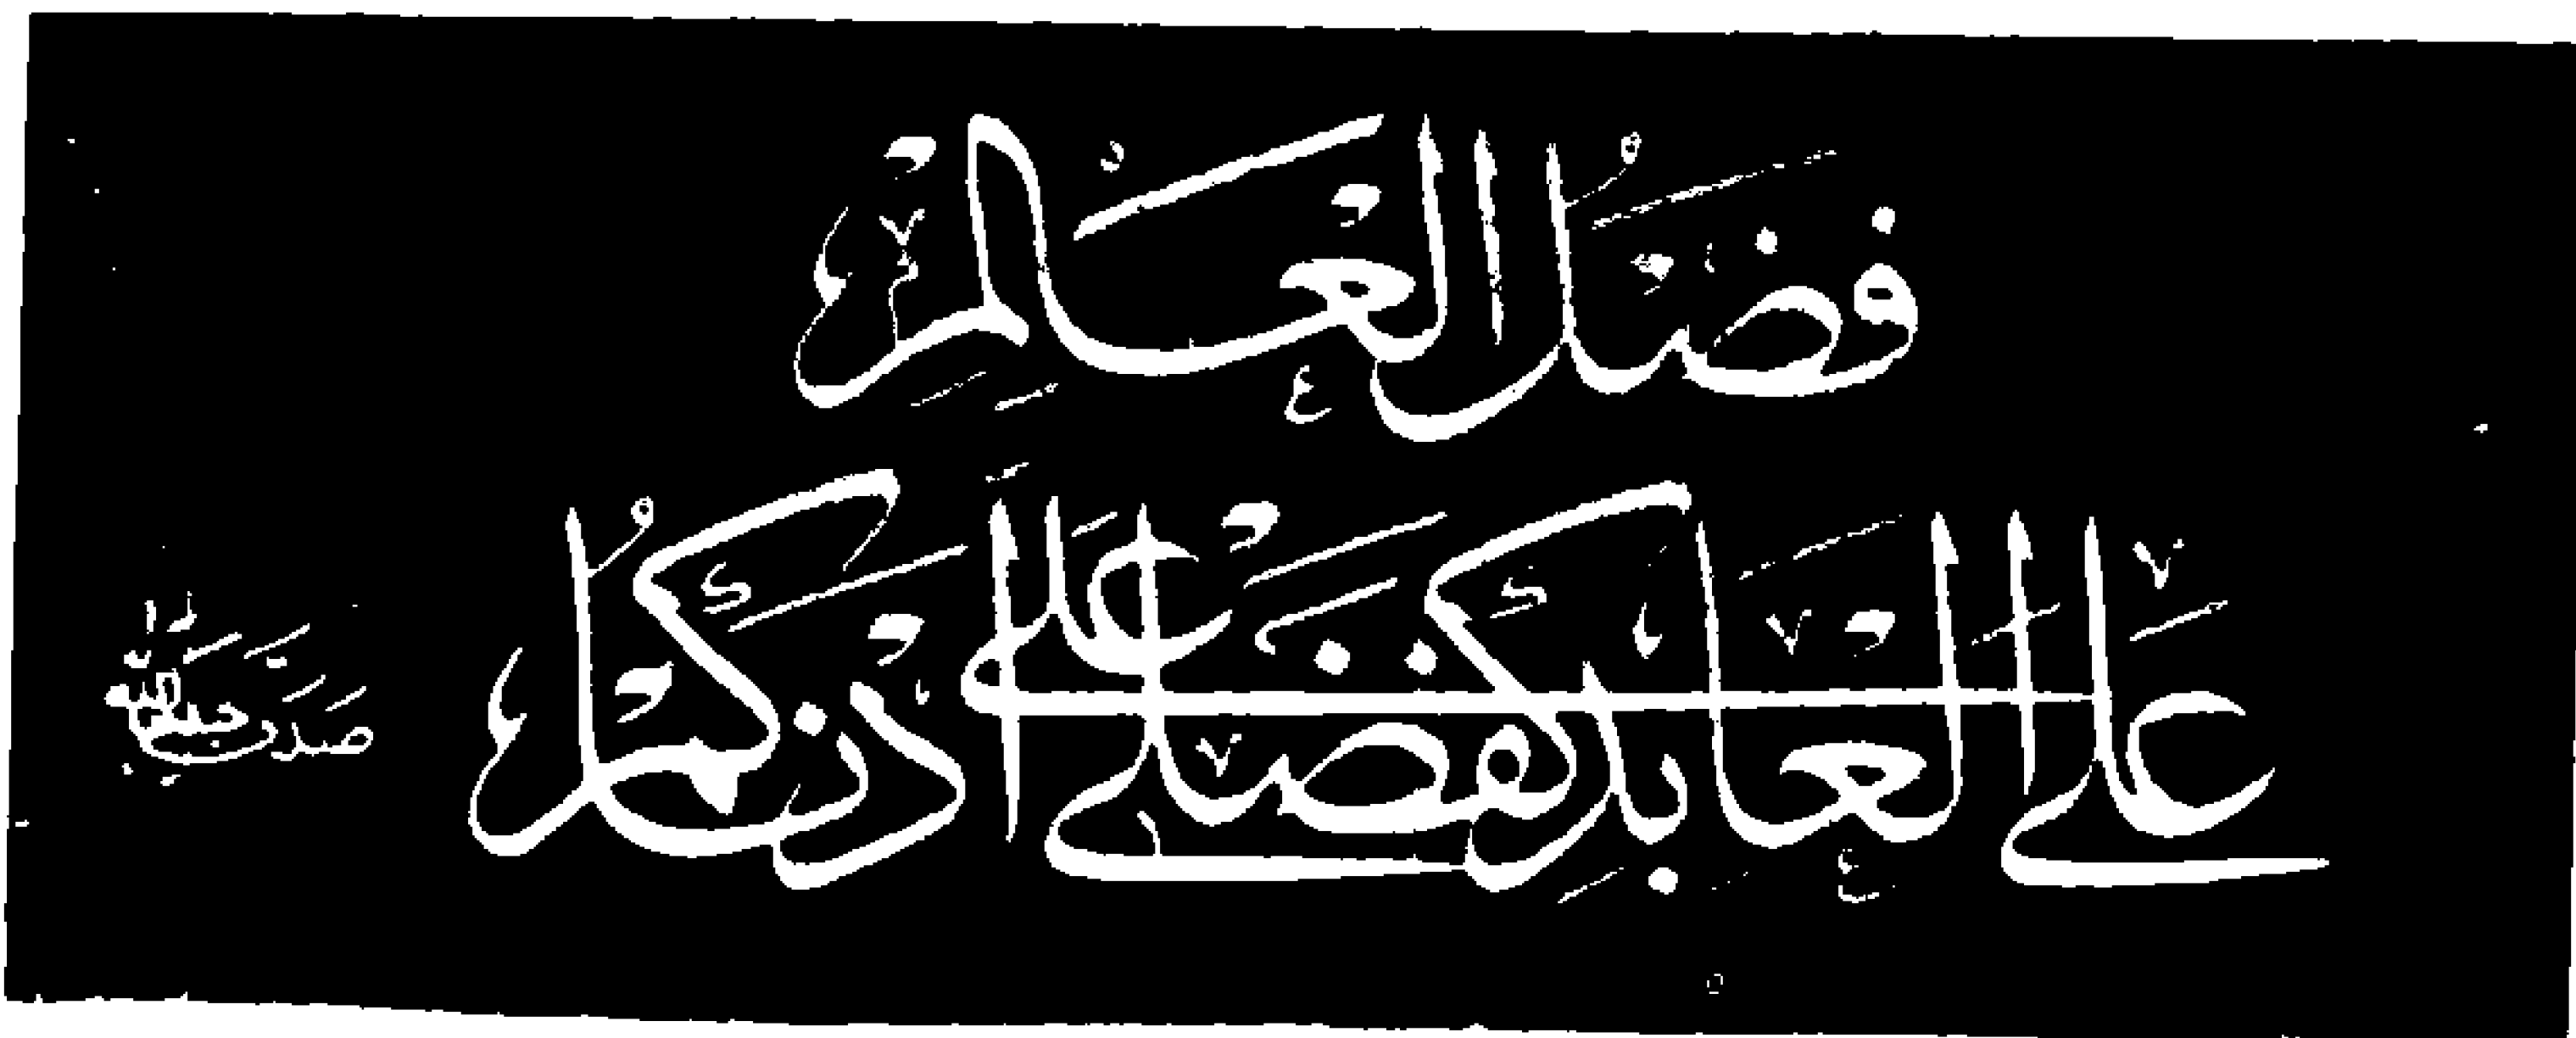 فَضْلُ الْعَالِمِ
عَلَى الْعَابِدِ كَفَضْلِي عَلَى أَدْنَاكُمْ
صَدَقَ حَبِيبُ اللّٰهِ